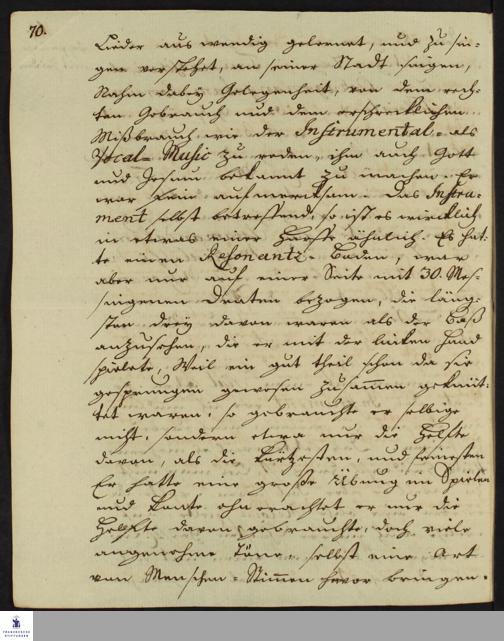 70.
Lieder auswendig gelernet, und zu sin-
gen verstehet, an seiner Statt singen,
Nahm dabey Gelegenheit, von dem rech-
ten Gebrauch und dem erschrecklichen
Mißbrauch wie der Instrumental- als
Vocal-Music zu reden, ihm auch Gott
und Jesum bekannt zu machen. Er
war fein aufmercksam. Das Instru-
ment selbst betreffend, so ist es würcklich
in etwas einer Harffe ähnlich. Er hat-
te einen Resonantz-Boden, war
aber nur auf einer Seite mit 30. Mes-
singenen Draten bezogen, die läng-
sten drey davon waren als der Baß
anzusehen, die er mit der lincken Hand
spielete, Weil ein gut theil schon da sie
gesprungen gewesen zusammen geknüt-
tet waren, so gebrauchte er selbige
nicht, sondern etwa nur die Helfte
davon, als die kürtzesten, und feinesten
Er hatte eine große Übung im Spielen
und konte ohnerachtet er nur die
Helffte davon gebrauchte, doch viele
angenehme Töne, selbst eine Art
von Menschen-Stimmen hervor bringen.
FRANCKESCHE
STIFTUNGEN